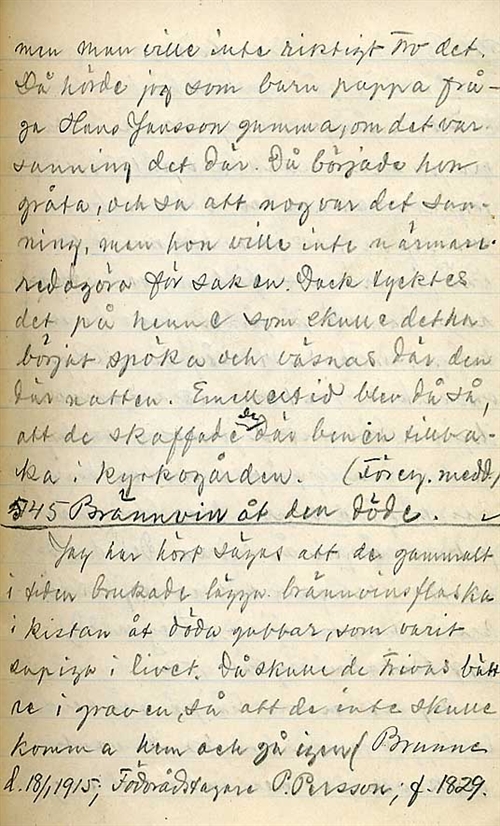 men man ville inte riktigt tro det.
Då hörde jag som barn pappa frå-
ga Hans Jansson gumma, om det var
sanning det där. Då började hon
gråta, och sa att nog var det san-
ning, men hon ville inte närmare
redogöra för saken. Dock tycktes
det på henne som skulle det ha
börjat spöka och väsnas där den
där natten. Emellertid blev då så,
att de skaffade de där benen tillba-
ka i kyrkogården. (Föreg. medd)
545 Brännvin åt den döde.
Jag har hört sägas att de gammalt
i tiden brukade lägga brännvinsflaska
i kistan åt döda gubbar, som varit
supiga i livet. Då skulle de trivas bätt
re i graven, så att de inte skulle
komma hem och gå igen (Brunne
d. 18/1, 1915; Födorådstagare P. Persson; f. 1829.